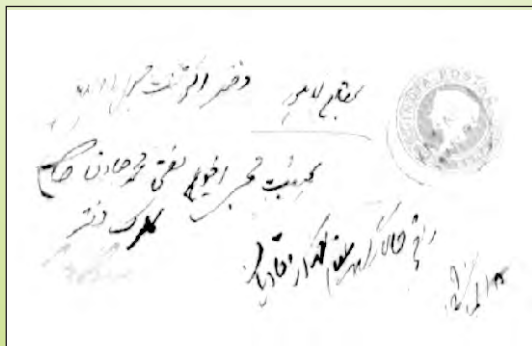 بمقام لاہور دفتر اکونٹنٹ جنرل
محبی اخویم مفتی محمد صادق صاحب
کلرک دفتر
راقم خاکسار غلام احمد از قادیان
INDIA POSTAGE